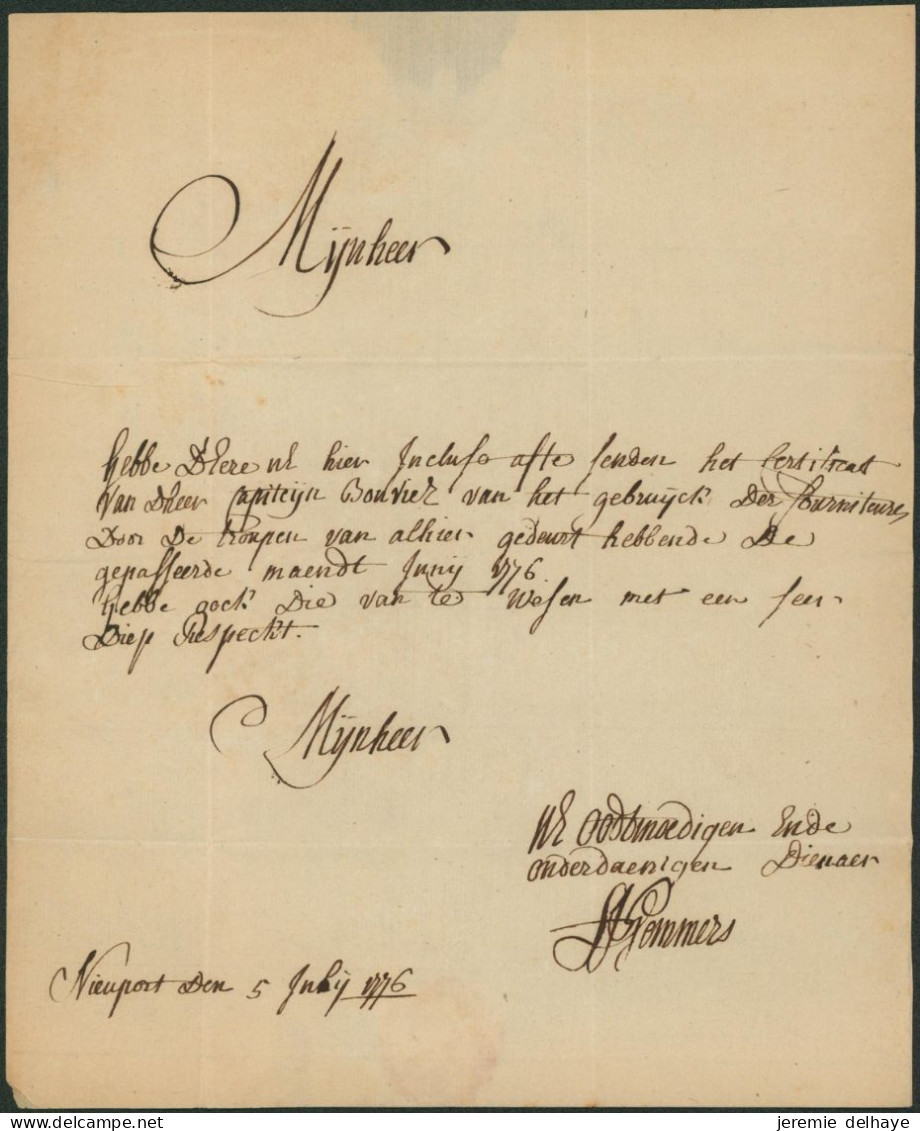 Mijnheer
hebbe D'Eere UE hier Incluso afte senden het Certificat
Van D'heer Capiteijn Bouvier van het gebruijck Der fournitures
Door De troupen van alhier gedeurt hebbende De
gepasseerde maendt Junij 1776
hebbe oock Die van te Wesen met een seer
Diep Respeckt.
Mijnheer
UE oodtmoedigen Ende
onderdaenigen Dienaer
Gommers
Nieuport Den 5 Julij 1776
jeremie delhaye